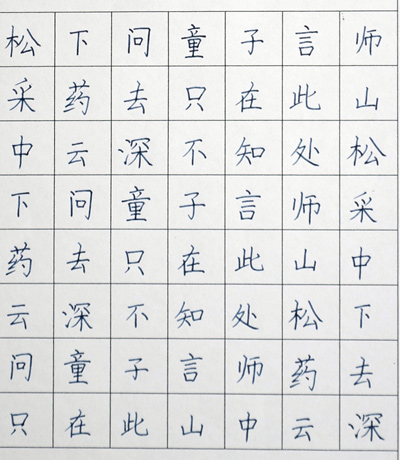 松下问童子言师
采药去只在此山
中云深不知处松
下问童子言师采
药去只在此山中
云深不知处松下
问童子言师药去
只在此山中云深